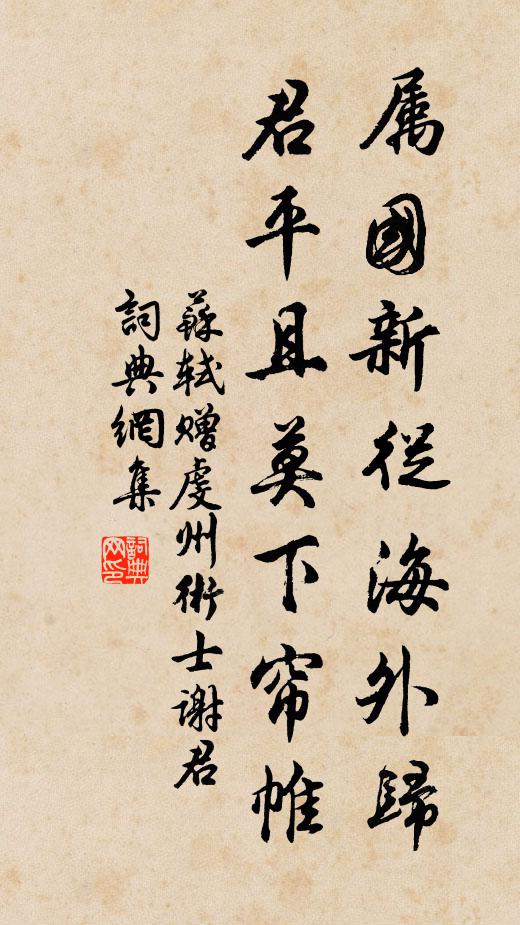 属國新從海外歸
君平且莫下帘帷
蘇軾贈虔州術士謝君
詞典網集
詞典
网印